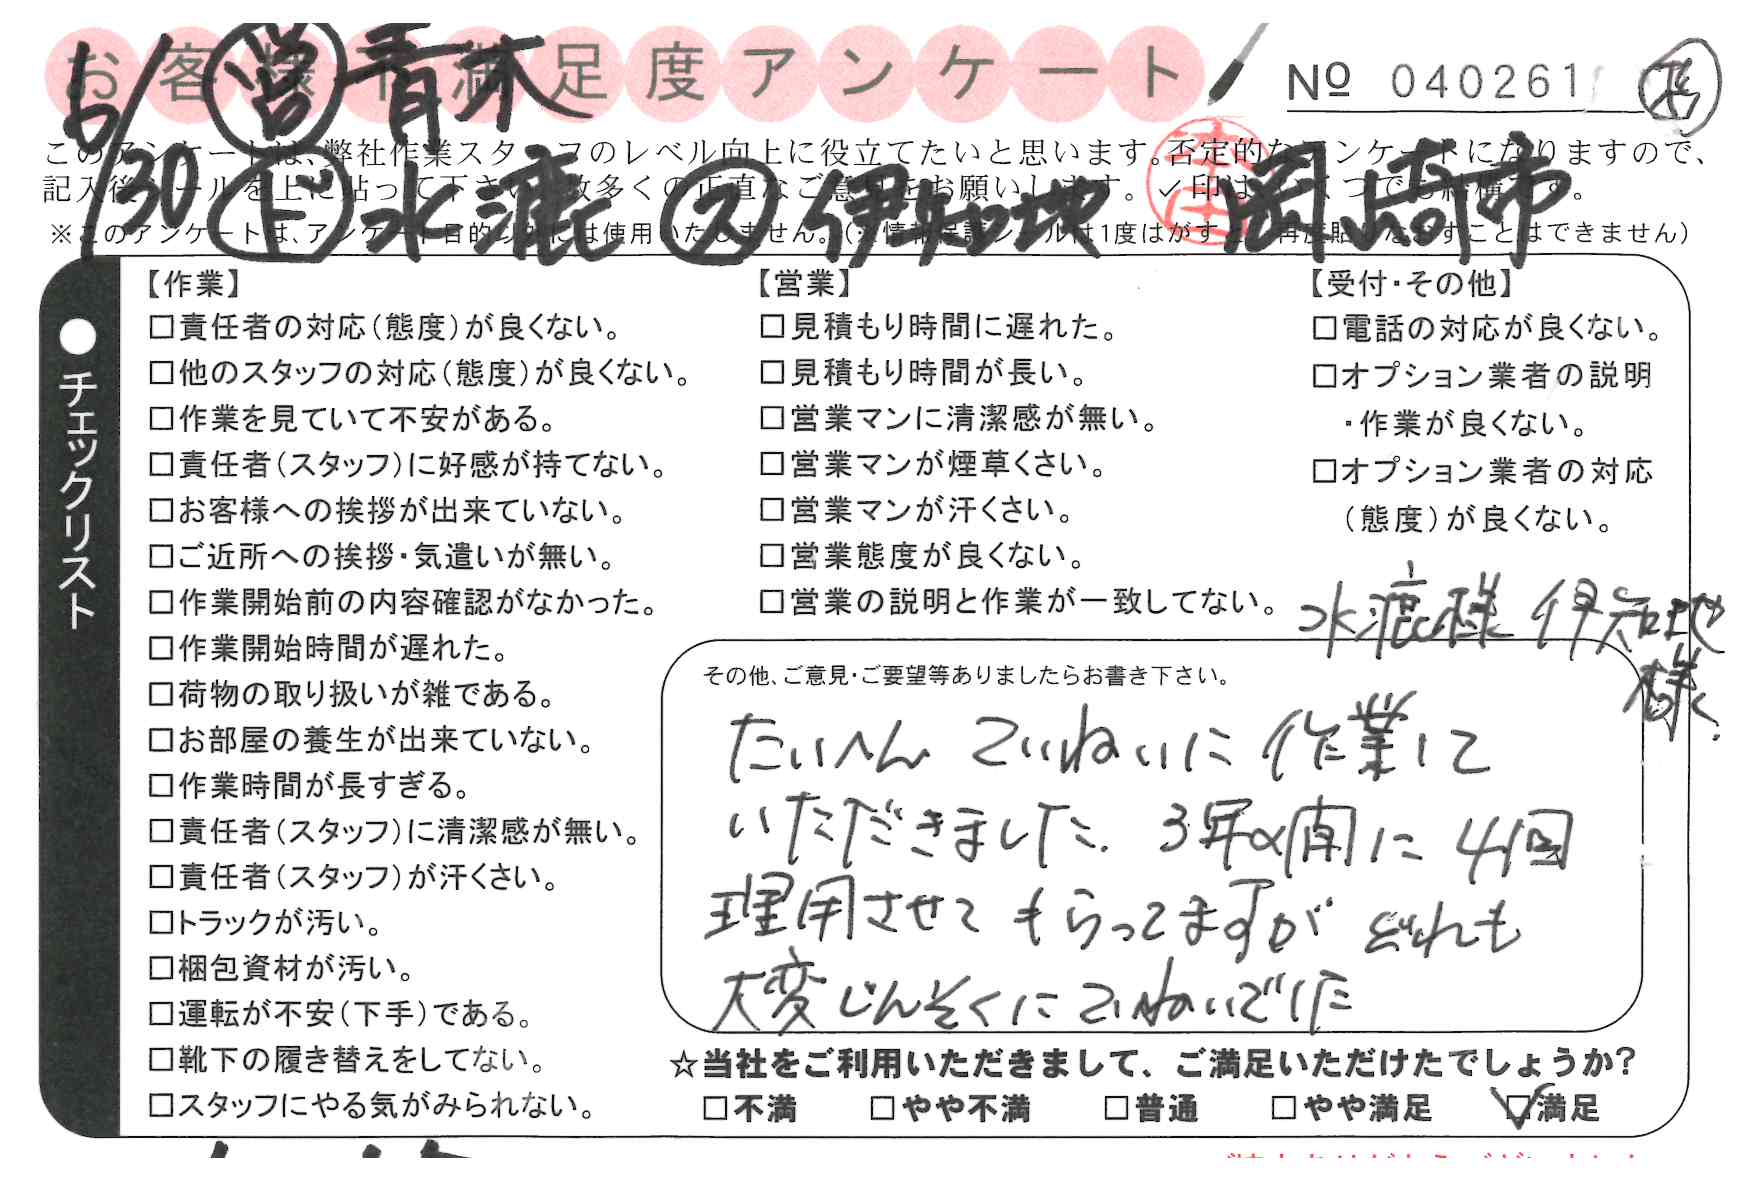 お客様不満足度アンケート
№ 040261
6/30 営 青木
ド 水漉 ス 伊知地 岡崎市
このアンケートは、弊社作業スタッフのレベル向上に役立てたいと思います。否定的なアンケートになりますので、
記入後シールを上に貼って下さい。数多くの正直なご意見をお願いします。✓印はいくつでも結構です。
※このアンケートは、アンケート目的以外には使用いたしません。(※情報保護シールは1度はがすと、再度貼りなおすことはできません)
●チェックリスト
【作業】
□責任者の対応(態度)が良くない。
□他のスタッフの対応(態度)が良くない。
□作業を見ていて不安がある。
□責任者(スタッフ)に好感が持てない。
□お客様への挨拶が出来ていない。
□ご近所への挨拶・気遣いが無い。
□作業開始前の内容確認がなかった。
□作業開始時間が遅れた。
□荷物の取り扱いが雑である。
□お部屋の養生が出来ていない。
□作業時間が長すぎる。
□責任者(スタッフ)に清潔感が無い。
□責任者(スタッフ)が汗くさい。
□トラックが汚い。
□梱包資材が汚い。
□運転が不安(下手)である。
□靴下の履き替えをしてない。
□スタッフにやる気がみられない。
【営業】
□見積もり時間に遅れた。
□見積もり時間が長い。
□営業マンに清潔感が無い。
□営業マンが煙草くさい。
□営業マンが汗くさい。
□営業態度が良くない。
□営業の説明と作業が一致してない。
【受付・その他】
□電話の対応が良くない。
□オプション業者の説明
・作業が良くない。
□オプション業者の対応
(態度)が良くない。
水漉様 伊知地
様
その他、ご意見・ご要望等ありましたらお書き下さい。
たいへん ていねいに 作業して
いただきました。3年の間に 4回
理用させて もらってますが どれも
大変 じんそくに ていねいでした
☆当社をご利用いただきまして、ご満足いただけたでしょうか?
□不満 □やや不満 □普通 □やや満足 ☑満足